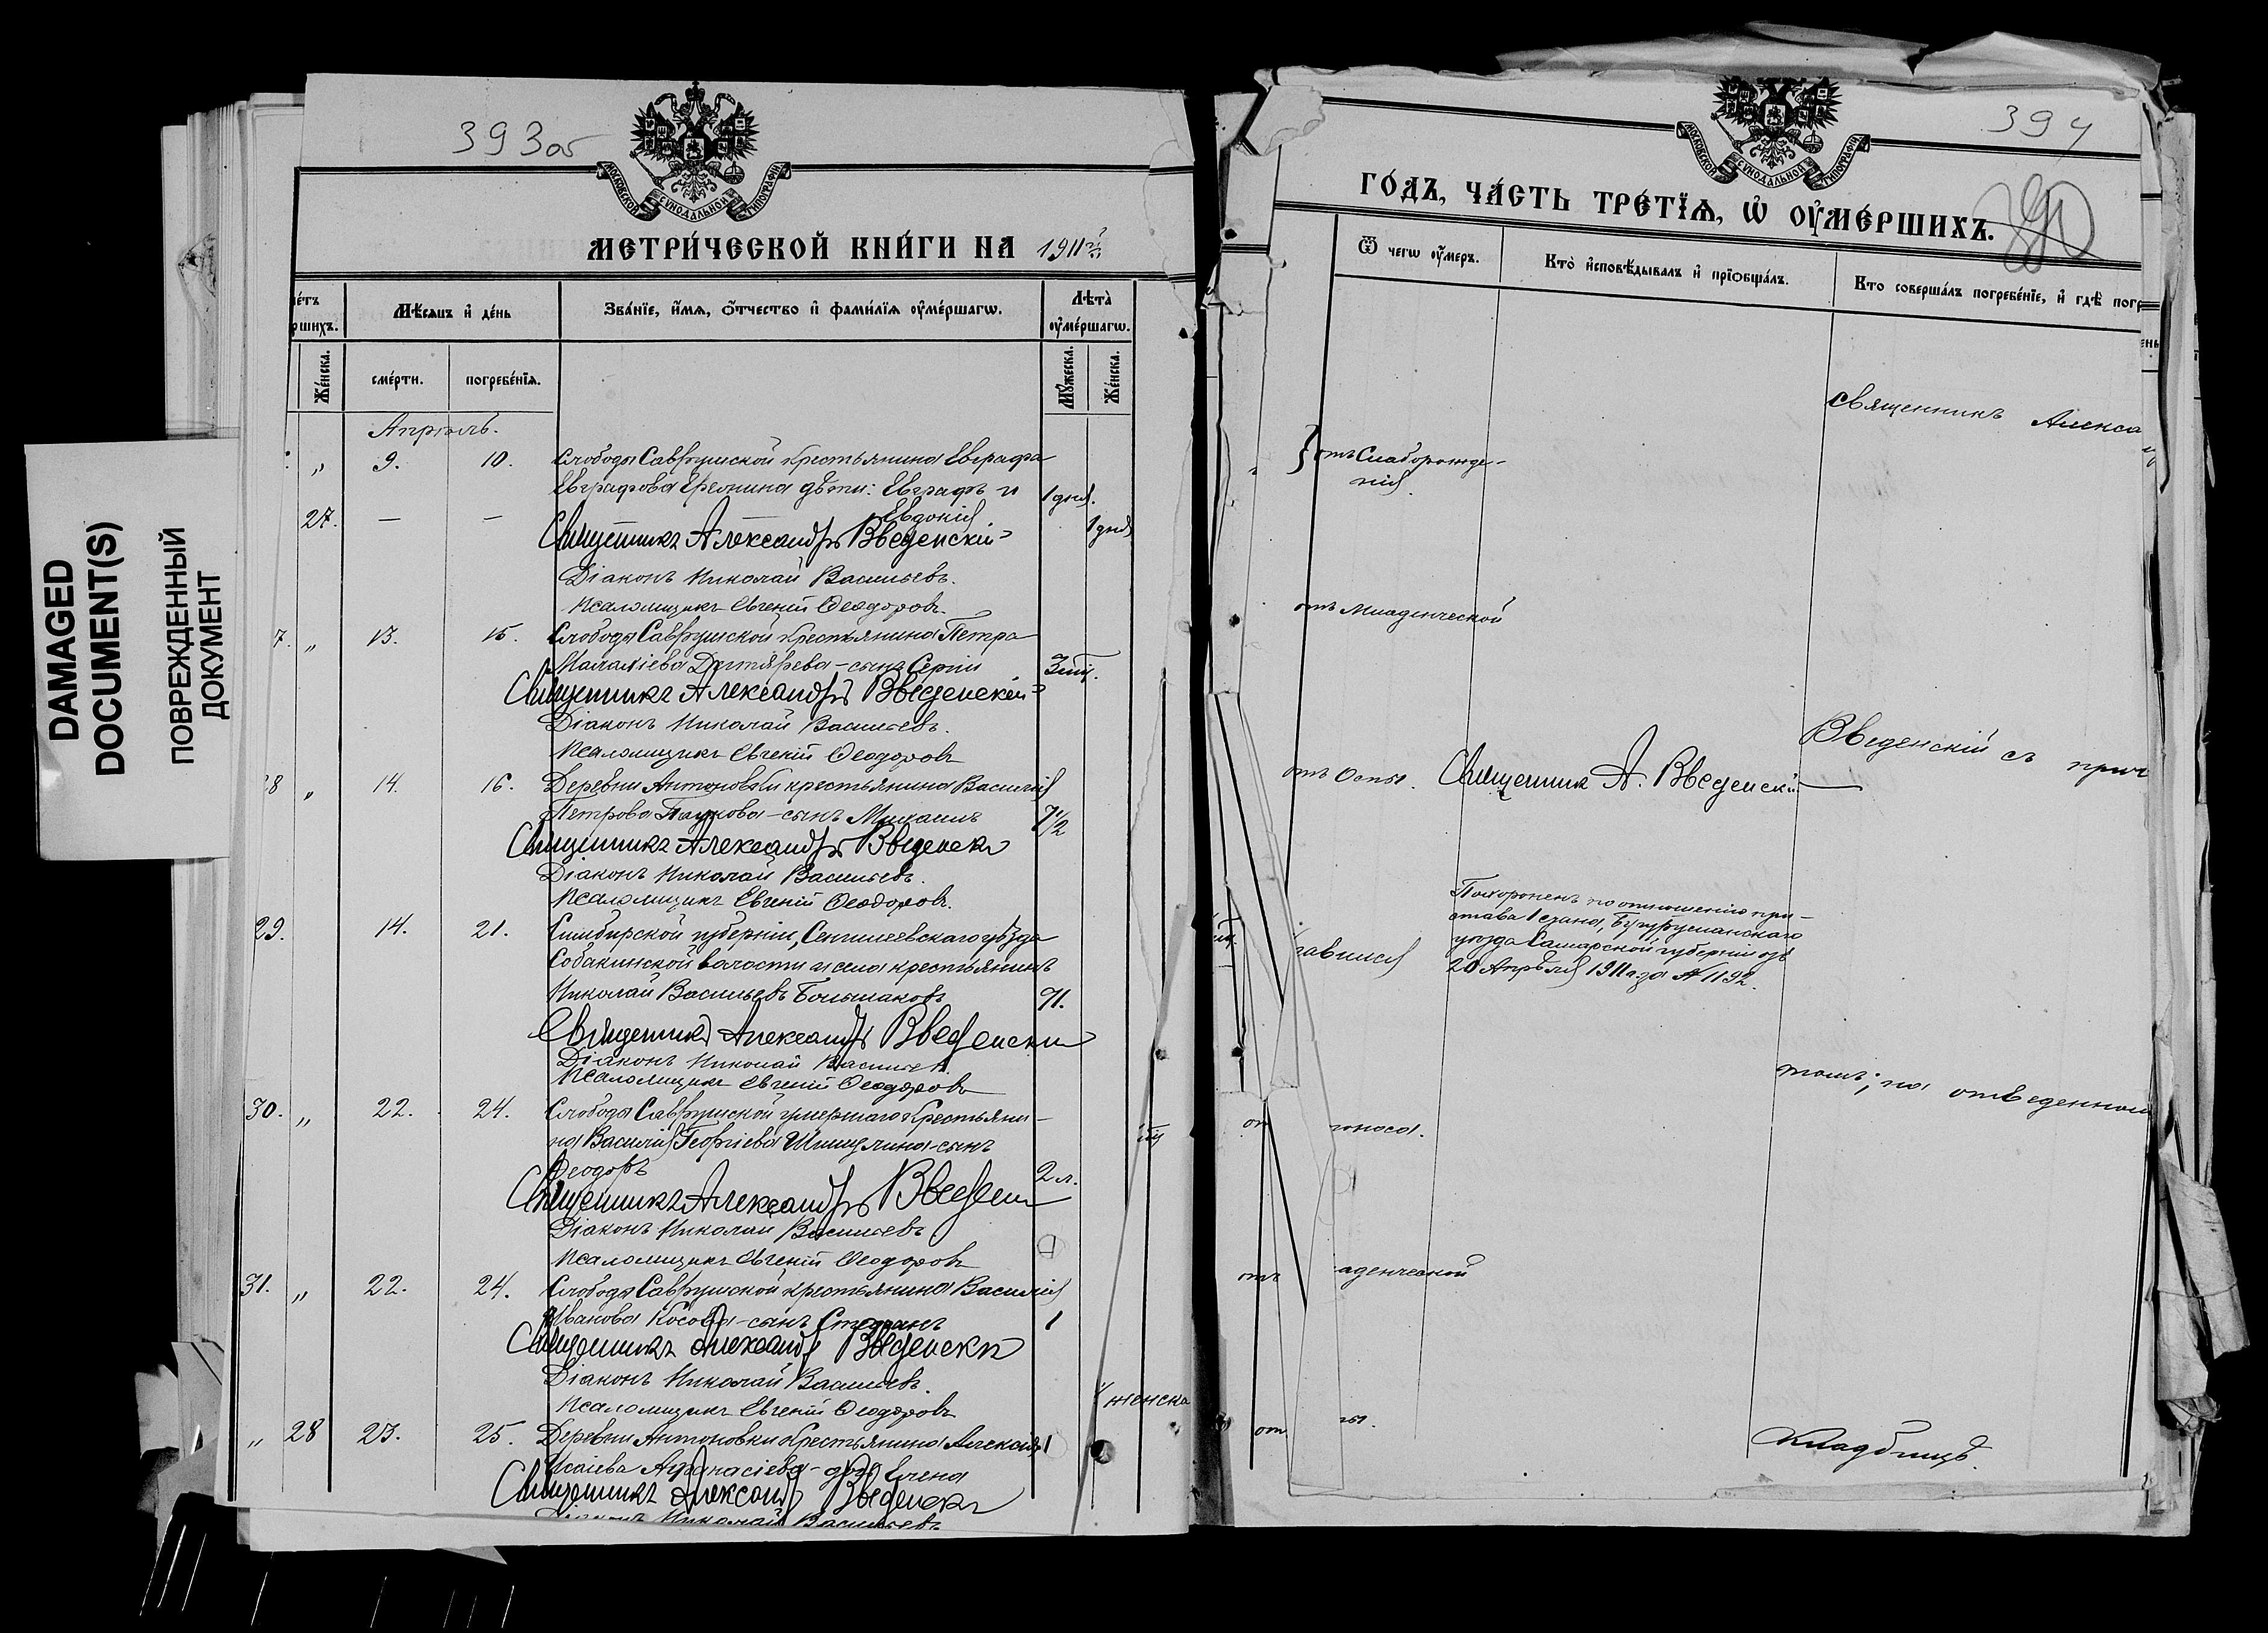 DAMAGED
DOCUMENT(S)
ПОВРЕЖДЕННЫЙ
ДОКУМЕНТ
393об
МОСКОВСКОЙ СУНОДАЛЬНОЙ ТИПОГРАФІИ
МЕТРИ́ЧЕСКОЙ КНИ́ГИ НА 1911
Мѣ́сяцъ и҆ де́нь
Зва́нїе, и҆́мѧ, ѻ҆́тчество и҆ фамилїѧ ᲂу҆ме́ршагѡ.
Лѣта̀
ᲂу҆ме́ршагѡ.
Же́нска.
сме́рти.
погребе́нїѧ.
Мꙋ́жеска.
Же́нска.
Апрѣль.
„ 9. 10. Слободы Саврушской крестьянина Евграфа
Евграфова дѣти: Евграфъ и 1 дня.
27. — — Евдокія 1 дня
Священникъ Александръ Введенскій
Діаконъ Николай Васильевъ.
Псаломщикъ Евгеній Ѳеодоровъ.
7. „ 13. 15. Слободы Саврушской крестьянина Петра
Малахіева Дегтярева – сынъ Сергій 3
Священникъ Александръ Введенскій
Діаконъ Николай Васильевъ.
Псаломщикъ Евгеній Ѳеодоровъ
28 „ 14. 16. Деревни Антоновки крестьянина Василія
Петрова – сынъ Михаилъ 1/2
Священникъ Александръ Введенскі
Діаконъ Николай Васильевъ.
Псаломщикъ Евгеній Ѳеодоровъ.
29. 14. 21. Симбирской губерніи, Сенгилеевскаго уѣзда
Собакинской волости и села крестьянинъ
Николай Васильевъ Большаковъ 71.
Священникъ Александръ Введенскій
Діаконъ Николай Васильевъ
Псаломщикъ Евгеній Ѳеодоровъ
30. „ 22. 24. Слободы Саврушской умершаго крестьяни-
на Василія Георгіева Шишулина – сынъ
Ѳеодоръ 2 л.
Священникъ Александръ Введенскі
Діаконъ Николай Васильевъ
Псаломщикъ Евгеній Ѳеодоровъ
31. „ 22. 24. Слободы Саврушской крестьянина Василія
Иванова Косова – сынъ Стефанъ 1
Священникъ Александръ Введенскі
Діаконъ Николай Васильевъ.
Псаломщикъ Евгеній Ѳеодоровъ
женска
„ 28 23. 25. Деревни Антоновки крестьянина Алексія 1
Исаіева Аѳанасіева – дочь Елена
Священникъ Александръ Введенскі
Діаконъ Николай Васильевъ
394
МОСКОВСКОЙ СУНОДАЛЬНОЙ ТИПОГРАФІИ
ГО́ДЪ, ЧА́СТЬ ТРЕ́ТЇѦ, Ѡ҆ ОУ҆МЕ́РШИХЪ.
Ѿ чегѡ̀ ᲂу҆́меръ.
Кто̀ и҆сповѣ́дывалъ и҆ прїѡбща́лъ.
Кто̀ соверша́лъ погребе́нїе, и҆ гдѣ̀ погр
священникъ Алекса
отъ Слаборожде-
нія.
отъ Младенческой
Введенскій съ прич
отъ Оспы. Священникъ А. Введенскій
Похороненъ по отношенію при-
става 1 стана, Бугурусланскаго
уѣзда Самарской губерніи отъ
20 Апрѣля 1911 г. за № 1192.
авшися
томъ; на отведенном
от поноса.
отъ аденческой
от
кладбищѣ.